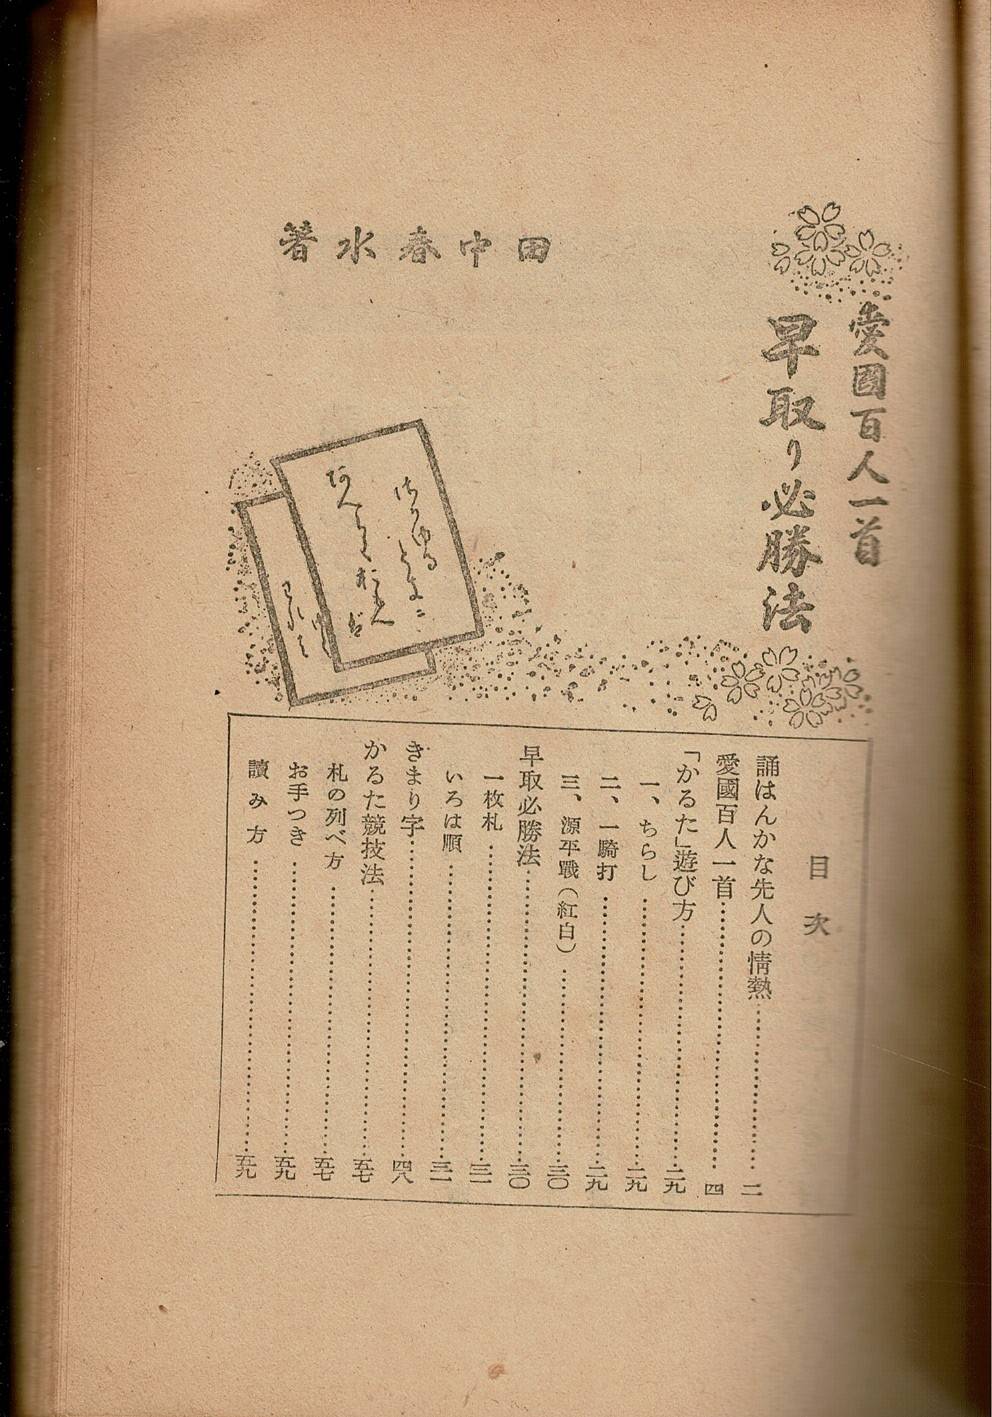 愛國百人一首
早取り必勝法
田中春水著
目次
誦はんかな先人の情熱……二
愛國百人一首……四
「かるた」遊び方……二九
一、ちらし……二九
二、一騎打……二九
三、源平戰（紅白）……三〇
早取必勝法……三〇
一枚札……三一
いろは順……三一
きまり字……四八
かるた競技法……五七
札の列べ方……五七
お手つき……五九
讀み方……五九